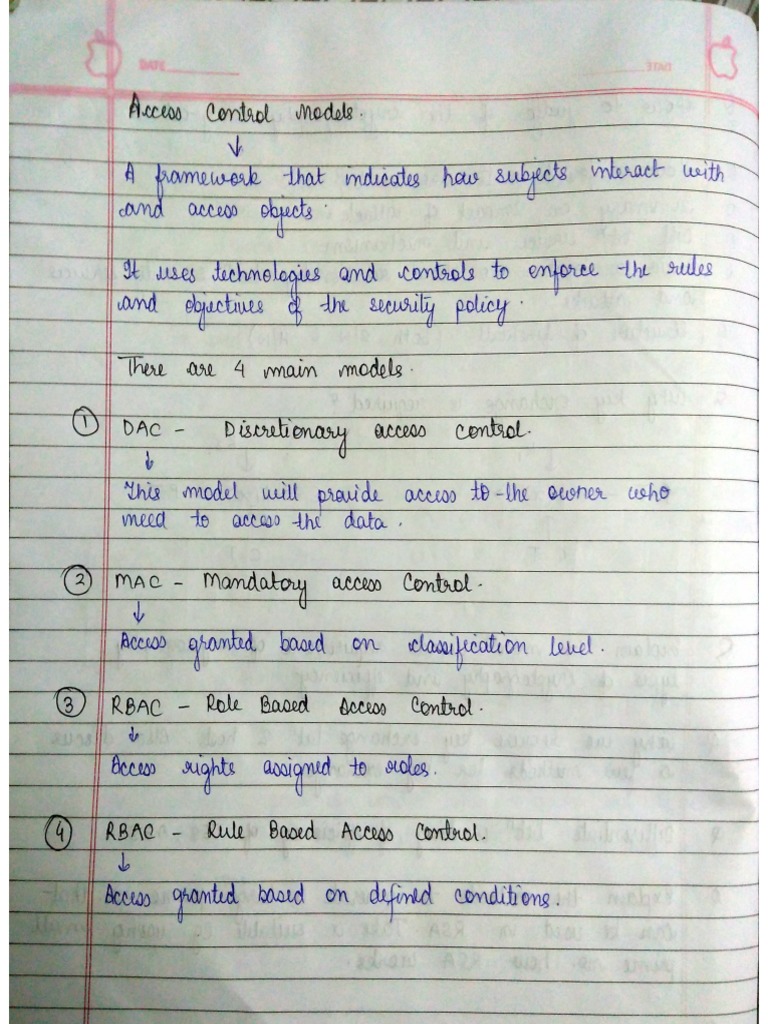 Access Control Models.
A framework that indicates how subjects interact with
and access objects.
It uses technologies and controls to enforce the rules
and objectives of the security policy.
There are 4 main models.
① DAC - Discretionary access control.
This model will provide access to the owner who
need to access the data.
② MAC - Mandatory access control.
Access granted based on classification level.
③ RBAC - Role Based Access Control.
Access rights assigned to roles.
④ RBAC - Rule Based Access Control.
Access granted based on defined conditions.